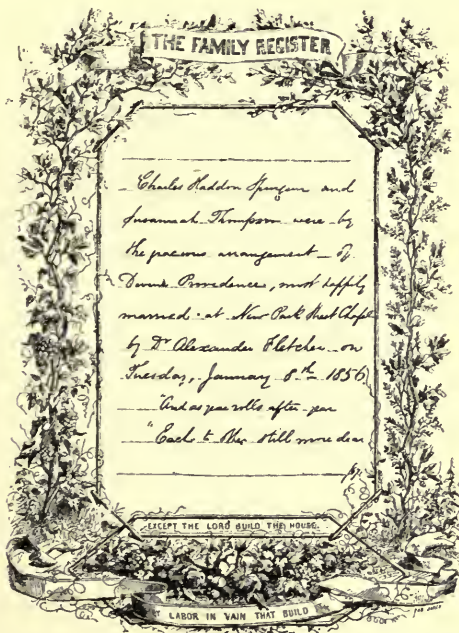 THE FAMILY REGISTER
Charles Haddon Spurgeon and
Susannah Thompson were by
the gracious arrangement of
Divine Providence, most happily
married at New Park Street Chapel
by Dr Alexander Fletcher on
Tuesday, January 8th 1856
"And as year rolls after year
"Each to other still more dear
EXCEPT THE LORD BUILD THE HOUSE.
LABOR IN VAIN THAT BUILD